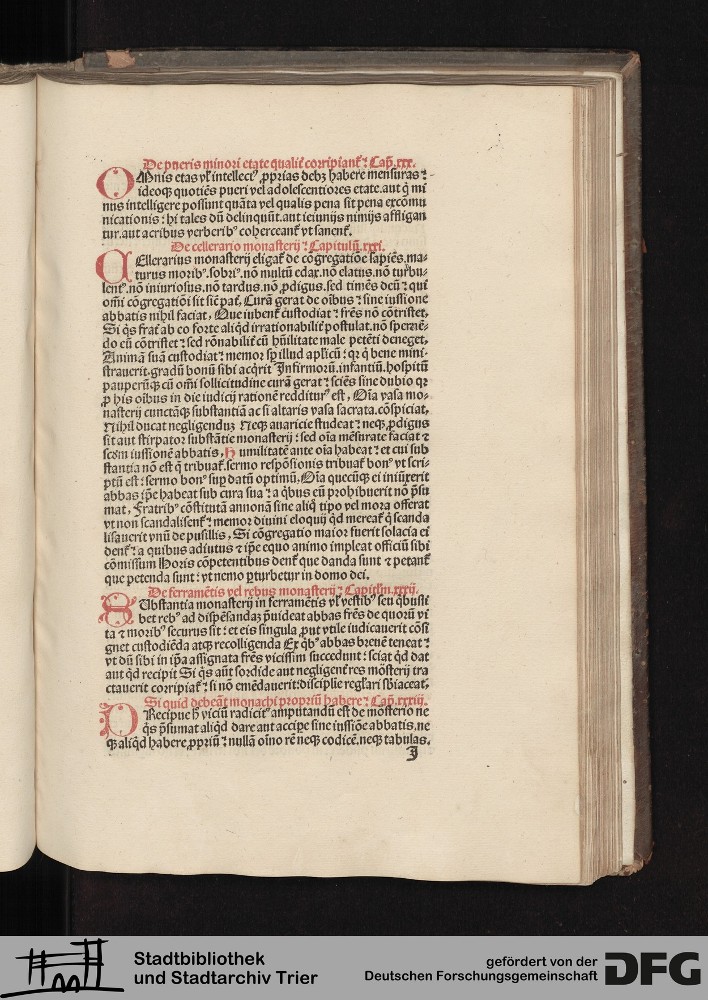 De pueris minori etate qualit᷑ corripiant᷑ : Cap̃. xxx.
OMnis etas vl̓ intellectꝰ ꝓprias debꝫ habere mensuras :
ideoqꝫ quotiẽs pueri vel adolescentiores etate. aut q̃ mi
nus intelligere possunt quãta vel qualis pena sit pena excõmu
nicationis : hi tales dũ delinquũt. aut ieiunijs nimijs affligan
tur. aut acribus verberibꝰ coherceant᷑ vt sanent᷑.
De cellerario monasterij : Capitulũ. xxxi.
CEllerarius monasterij eligat᷑ de cõgregatiõe sapiẽs. ma-
turus moribꝰ. sobriꝰ. nõ multũ edax. nõ elatus. nõ turbu-
lentꝰ. nõ iniuriosus. nõ tardus. nõ ꝓdigus. sed timẽs deũ : qui
om̃i cõgregatiõi sit sic̃ pat᷑. Curã gerat de oĩbus : sine iussione
abbatis nihil faciat. Que iubent᷑ custodiat : fr̃es nõ cõtristet.
Si q̓s frat᷑ ab eo forte aliq̓d irrationabilit᷑ postulat. nõ spernẽ-
do eũ cõtristet : sed rõnabilit᷑ cũ hũilitate male petẽti deneget.
Animã suã custodiat : memor sp̱ illud ap̓licũ : qꝛ q̓ bene mini
strauerit. gradũ bonũ sibi acq̓rit Infirmorũ. infantiũ. hospitũ
pauperũqꝫ cũ om̃i sollicitudine curã gerat : sciẽs sine dubio qꝛ
ꝓ his oĩbus in die iudicij rationẽ redditurꝰ est. Oĩa vasa mo-
nasterij cunctãqꝫ substantiã ac si altaris vasa sacrata. cõspiciat.
Nihil ducat negligenduꝫ Neqꝫ auaricie studeat : neqꝫ ꝓdigus
sit aut stirpator substãtie monasterij : sed oĩa mẽsurate faciat ⁊
scd̓m iussionẽ abbatis. Humilitatẽ ante oĩa habeat : et cui sub
stantia nõ est q̃ tribuat᷑. sermo respõsionis tribuat᷑ bonꝰ vt scri-
ptũ est : sermo bonꝰ suꝑ datũ optimũ. Oĩa quecũqꝫ ei iniũxerit
abbas ip̃e habeat sub cura sua : a q̓bus eũ prohibuerit nõ p̃su
mat. Fratribꝰ cõstitutã annonã sine aliq̓ tipo vel mora offerat
vt non scandalisent᷑ : memor diuini eloquij q̓d mereat᷑ q̓ scanda
lisauerit vnũ de pusillis. Si cõgregatio maior fuerit solacia ei
dent᷑ : a quibus adiutus ⁊ ip̃e equo animo impleat officiũ sibi
cõmissum Horis cõpetentibus dent᷑ que danda sunt ⁊ petant᷑
que petenda sunt : vt nemo ꝑturbetur in domo dei.
De ferramẽtis vel rebus monasterij : Capitl̃m. xxxij.
SUbstantia monasterij in ferramẽtis vl̓ vestibꝰ seu q̓busli
bet rebꝰ ad dispẽsandaꝫ p̃uideat abbas fr̃es de quorũ vi
ta ⁊ moribꝰ securus sit : et eis singula ꝓut vtile iudicauerit cõsi
gnet custodiẽda atqꝫ recolligenda Ex q̓bꝰ abbas breuẽ teneat :
vt dũ sibi in ip̃a assignata fr̃es vicissim succedunt : sciat q̓d dat
aut q̓d recipit Si q̓s aũt sordide aut negligent᷑ res mõsterij tra
ctauerit corripiat᷑ : si nõ emẽdauerit : disciplie reglari sb̓iaceat.
Si quid debeãt monachi propriũ habere : Cap̃. xxxiij.
PRecipue h̓ viciũ radicitꝰ amputandũ est de mõsterio ne
q̓s p̃sumat aliq̓d dare aut accipe sine iussiõe abbatis. ne
qꝫ aliq̓d habere ꝓpriũ : nullã oĩno rẽ neqꝫ codicẽ. neqꝫ tabulas.
I
Stadtbibliothek
und Stadtarchiv Trier
gefördert von der
Deutschen Forschungsgemeinschaft
DFG